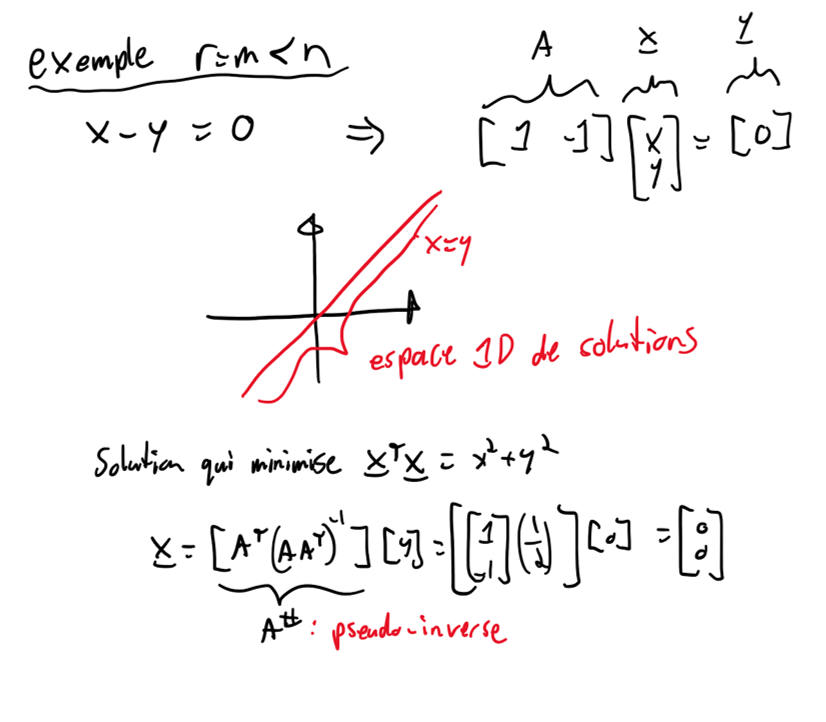 exemple r=m<n
A x y
x-y=0 ⇒ [1 -1] [x y] = [0]
x=y
espace 1D de solutions
Solution qui minimise x^T x = x²+y²
x = [A^T (A A^T)^-1] [y] = [[1 -1] (1/2)] [0] = [0 0]
A^# : pseudo-inverse